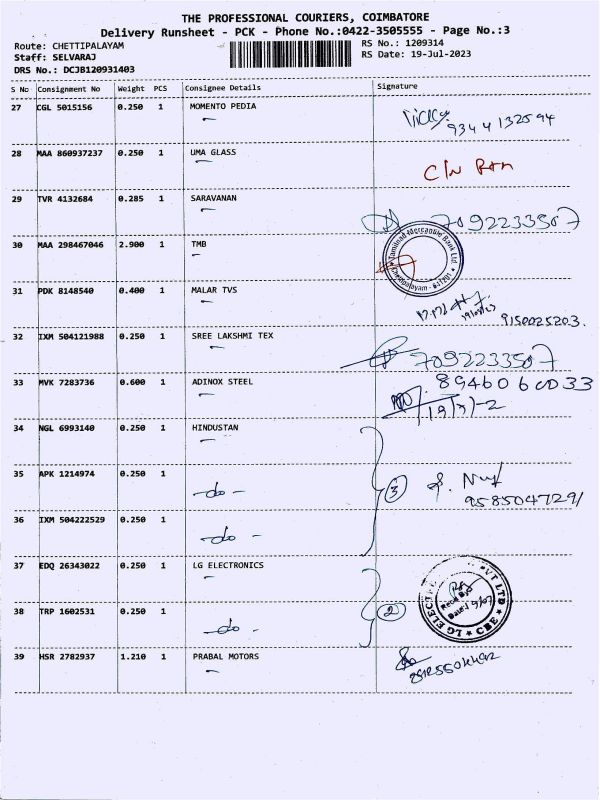 THE PROFESSIONAL COURIERS, COIMBATORE
Delivery Runsheet - PCK - Phone No.:0422-3505555 - Page No.:3
Route: CHETTIPALAYAM RS No.: 1209314
Staff: SELVARAJ RS Date: 19-Jul-2023
DRS No.: DCJB120931403
S No Consignment No Weight PCS Consignee Details Signature
27 CGL 5015156 0.250 1 MOMENTO PEDIA
9344132594
28 MAA 860937237 0.250 1 UMA GLASS
C/N
29 TVR 4132684 0.285 1 SARAVANAN
7092233507
30 MAA 298467046 2.900 1 TMB
Tamilnad Mercantile Bank Ltd.
Chettipalayam - 641201
31 PDK 8148540 0.400 1 MALAR TVS
9150025203.
32 IXM 504121988 0.250 1 SREE LAKSHMI TEX
7092233507
33 MVK 7283736 0.600 1 ADINOX STEEL
34 NGL 6993140 0.250 1 HINDUSTAN
35 APK 1214974 0.250 1 -do- 3
9585047291
36 IXM 504222529 0.250 1 -do-
37 EDQ 26343022 0.250 1 LG ELECTRONICS
38 TRP 1602531 0.250 1 -do- 2
LG ELECT PVT LTD
CBE
39 HSR 2782937 1.210 1 PRABAL MOTORS